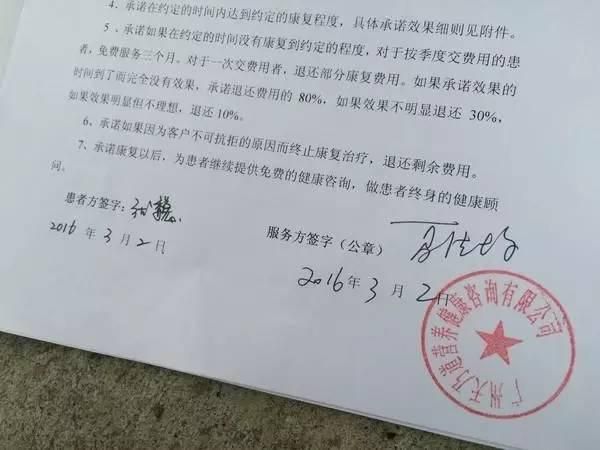 4、承诺在约定的时间内达到约定的康复程度，具体承诺效果细则见附件。
5、承诺如果在约定的时间没有康复到约定的程度，对于按季度交费用的患
者，免费服务三个月。对于一次交费用者，退还部分康复费用。如果承诺效果的
时间到了而完全没有效果，承诺退还费用的 80%，如果效果不明显退还 30%，
如果效果明显但不理想，退还 10%。
6、承诺如果因为客户不可抗拒的原因而终止康复治疗，退还剩余费用。
7、承诺康复以后，为患者继续提供免费的健康咨询，做患者终身的健康顾
问。
患者方签字：
2016 年 3 月 2 日
服务方签字（公章）
2016 年 3 月 2 日
广州天乃道营养健康咨询有限公司